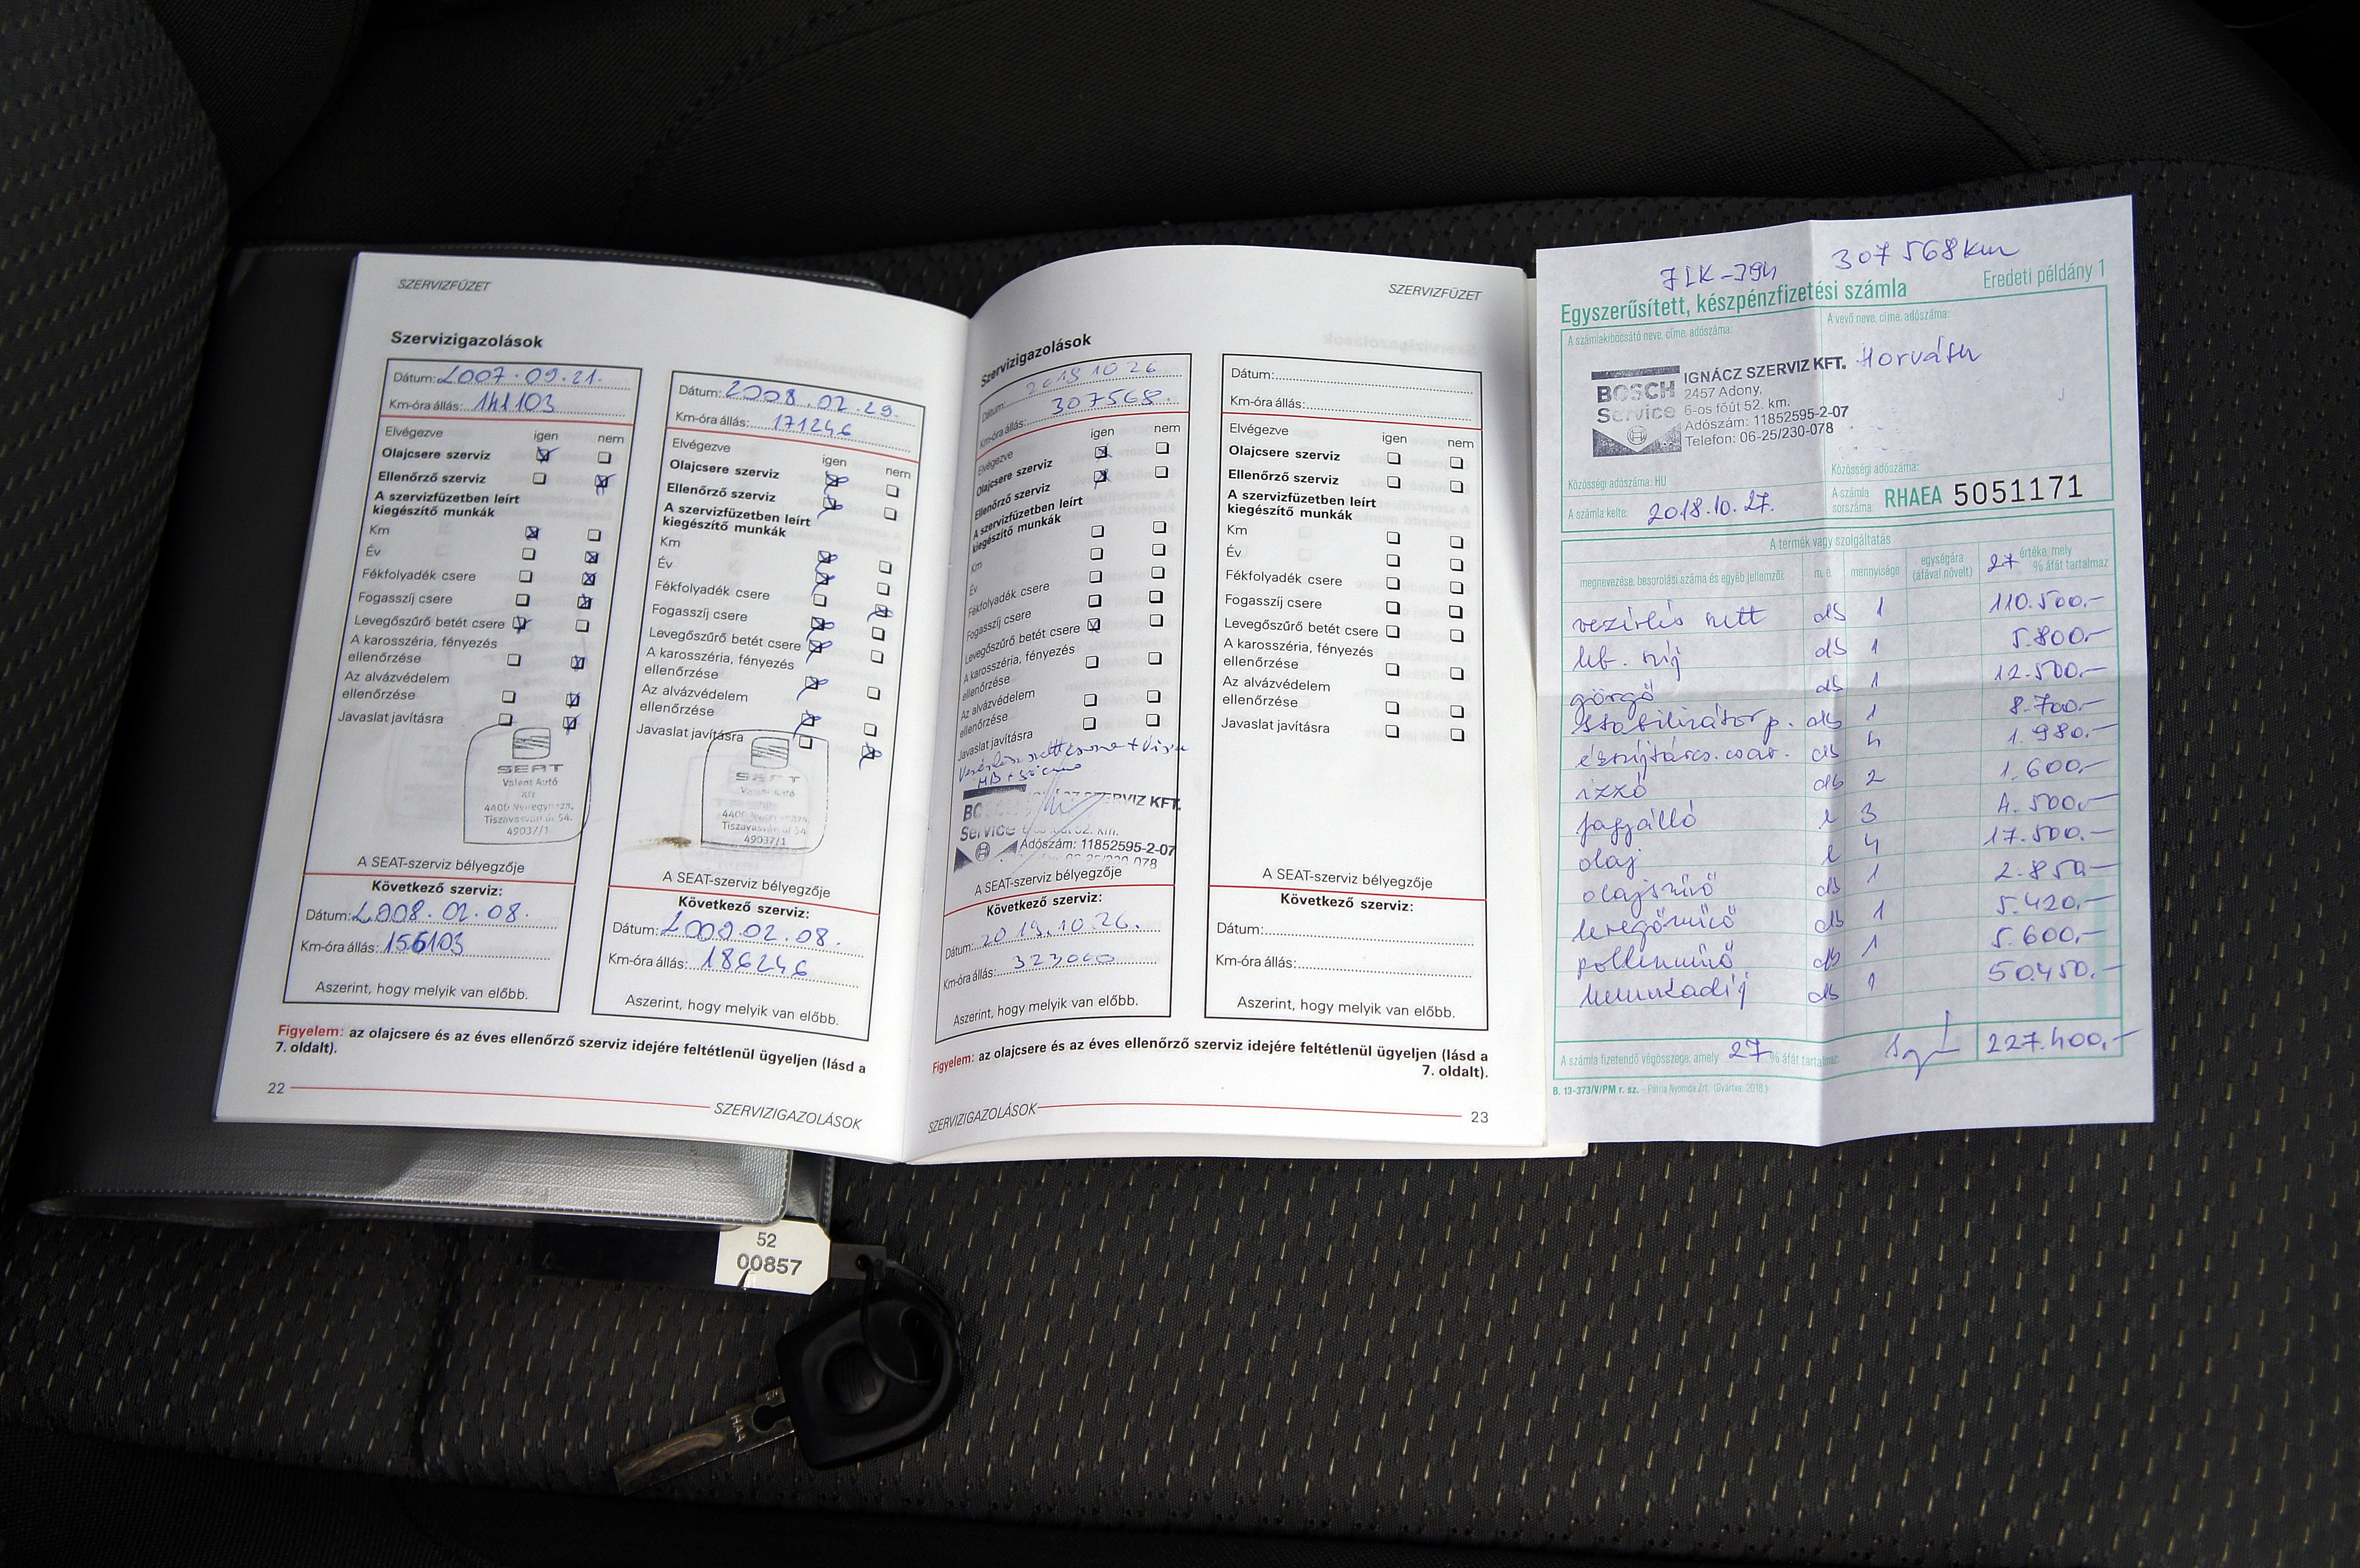 SZERVIZFÜZET
Szervizigazolások
Dátum: 2007.09.21.
Km-óra állás: 141103
Elvégezve igen nem
Olajcsere szerviz
Ellenőrző szerviz
A szervizfüzetben leírt
kiegészítő munkák
Km
Év
Fékfolyadék csere
Fogasszíj csere
Levegőszűrő betét csere
A karosszéria, fényezés
ellenőrzése
Az alvázvédelem
ellenőrzése
Javaslat javításra
SEAT
Valent Autó
Kft
4400 Nyíregyháza,
Tiszavasvári út 54.
49037/1
A SEAT-szerviz bélyegzője
Következő szerviz:
Dátum: 2008.02.08.
Km-óra állás: 156103
Aszerint, hogy melyik van előbb.
Dátum: 2008.02.29.
Km-óra állás: 171246
Elvégezve igen nem
Olajcsere szerviz
Ellenőrző szerviz
A szervizfüzetben leírt
kiegészítő munkák
Km
Év
Fékfolyadék csere
Fogasszíj csere
Levegőszűrő betét csere
A karosszéria, fényezés
ellenőrzése
Az alvázvédelem
ellenőrzése
Javaslat javításra
SEAT
Valent Autó
4400 Nyíregyháza,
Tiszavasvári út 54
49037/1
A SEAT-szerviz bélyegzője
Következő szerviz:
Dátum: 2009.02.08.
Km-óra állás: 186246
Aszerint, hogy melyik van előbb.
Figyelem: az olajcsere és az éves ellenőrző szerviz idejére feltétlenül ügyeljen (lásd a
7. oldalt).
22
SZERVIZIGAZOLÁSOK
SZERVIZFÜZET
Szervizigazolások
Dátum: 2018 10 26
Km-óra állás: 307568.
Elvégezve igen nem
Olajcsere szerviz
Ellenőrző szerviz
A szervizfüzetben leírt
kiegészítő munkák
Km
Év
Fékfolyadék csere
Fogasszíj csere
Levegőszűrő betét csere
A karosszéria, fényezés
ellenőrzése
Az alvázvédelem
ellenőrzése
Javaslat javításra
Vezérlés szett csere +
BOSCH SZERVIZ KFT.
Service 52. km.
Adószám: 11852595-2-07
A SEAT-szerviz bélyegzője
Következő szerviz:
Dátum: 2019.10.26.
Km-óra állás: 323000
Aszerint, hogy melyik van előbb.
Dátum:
Km-óra állás:
Elvégezve igen nem
Olajcsere szerviz
Ellenőrző szerviz
A szervizfüzetben leírt
kiegészítő munkák
Km
Év
Fékfolyadék csere
Fogasszíj csere
Levegőszűrő betét csere
A karosszéria, fényezés
ellenőrzése
Az alvázvédelem
ellenőrzése
Javaslat javításra
A SEAT-szerviz bélyegzője
Következő szerviz:
Dátum:
Km-óra állás:
Aszerint, hogy melyik van előbb.
Figyelem: az olajcsere és az éves ellenőrző szerviz idejére feltétlenül ügyeljen (lásd a
7. oldalt).
SZERVIZIGAZOLÁSOK
23
307568 km
Egyszerűsített, készpénzfizetési számla Eredeti példány 1
A számlakibocsátó neve, címe, adószáma: A vevő neve, címe, adószáma:
Horváth
BOSCH
Service
IGNÁCZ SZERVIZ KFT.
2457 Adony,
6-os főút 52. km.
Adószám: 11852595-2-07
Telefon: 06-25/230-078
Közösségi adószáma: HU Közösségi adószáma:
A számla kelte: 2018.10.27. A számla
sorszáma: RHAEA 5051171
A termék vagy szolgáltatás
megnevezése, besorolási száma és egyéb jellemzői: m. e. mennyisége egységára
(áfával növelt) 27 értéke, mely
% áfát tartalmaz
vezérlés szett db 1 110.500.-
db 1 5.800.-
görgő db 1 12.500.-
stabilizátor p. db 1 8.700.-
db 4 1.980.-
izzó db 2 1.600.-
fagyálló l 3 4.500.-
olaj l 4 17.500.-
olajszűrő db 1 2.850.-
levegőszűrő db 1 5.420.-
pollenszűrő db 1 5.600.-
munkadíj db 1 50.450.-
A számla fizetendő végösszege, amely 27 % áfát tartalmaz: 227.400.-
B. 13-373/V/PM r. sz. – Pátria Nyomda Zrt. (Gyártva: 2018.)
52
00857
HAA